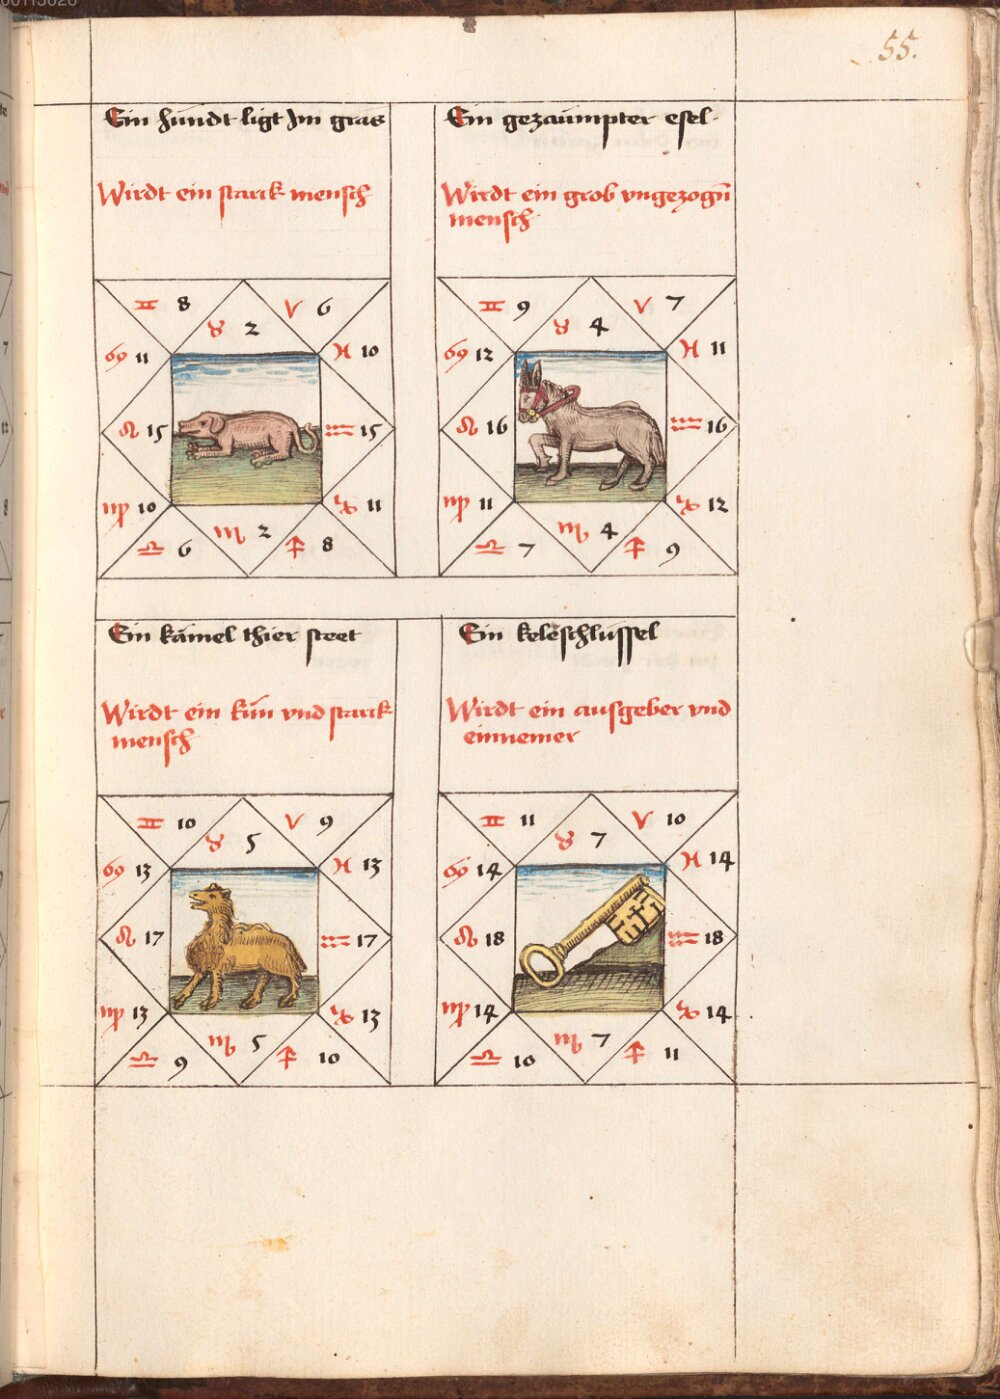 55.
Ein hundt ligt Im gras
Wirdt ein starck mensch
♊ 8
♉ 2
V 6
♋ 11
♓ 10
♌ 15
♒ 15
♍ 10
♑ 11
♎ 6
♏ 2
♐ 8
Ein gezaumpter esel
Wirdt ein grob vngezogn̄
mensch
♊ 9
♉ 4
V 7
♋ 12
♓ 11
♌ 16
♒ 16
♍ 11
♑ 12
♎ 7
♏ 4
♐ 9
Ein kämel thier steet
Wirdt ein kün vnd starck
mensch
♊ 10
♉ 5
V 9
♋ 13
♓ 13
♌ 17
♒ 17
♍ 13
♑ 13
♎ 9
♏ 5
♐ 10
Ein kelerschlussel
Wirdt ein ausgeber vnd
einnemer
♊ 11
♉ 7
V 10
♋ 14
♓ 14
♌ 18
♒ 18
♍ 14
♑ 14
♎ 10
♏ 7
♐ 11